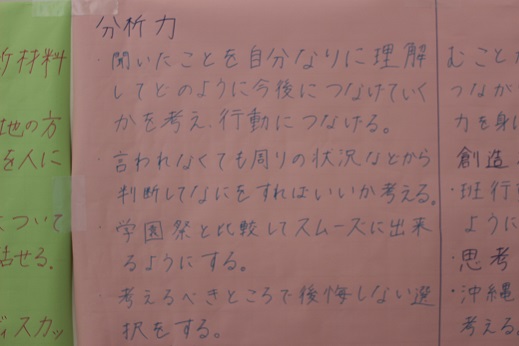 分析力
・聞いたことを自分なりに理解
してどのように今後につなげていく
かを考え、行動につなげる。
・言われなくても周りの状況などから
判断してなにをすればいいか考える。
・学園祭と比較してスムーズに出来
るようにする。
・考えるべきところで後悔しない選
択をする。
材料
地の方
を人に
ついて
話せる。
ディスカッ
むこと
つなが
力を身に
創造
・班行
ように
・思考
・沖縄
考える